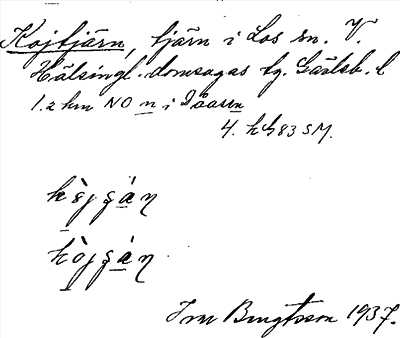 Kojtjärn, tjärn i Los sn. V.
Hälsingl. domsagas tg. Gävleb. l
1.2 km NO n i Tåasen
4. h G 83 SM.
kòjgàn
kòjgàn
Im Bengtsson 1937.